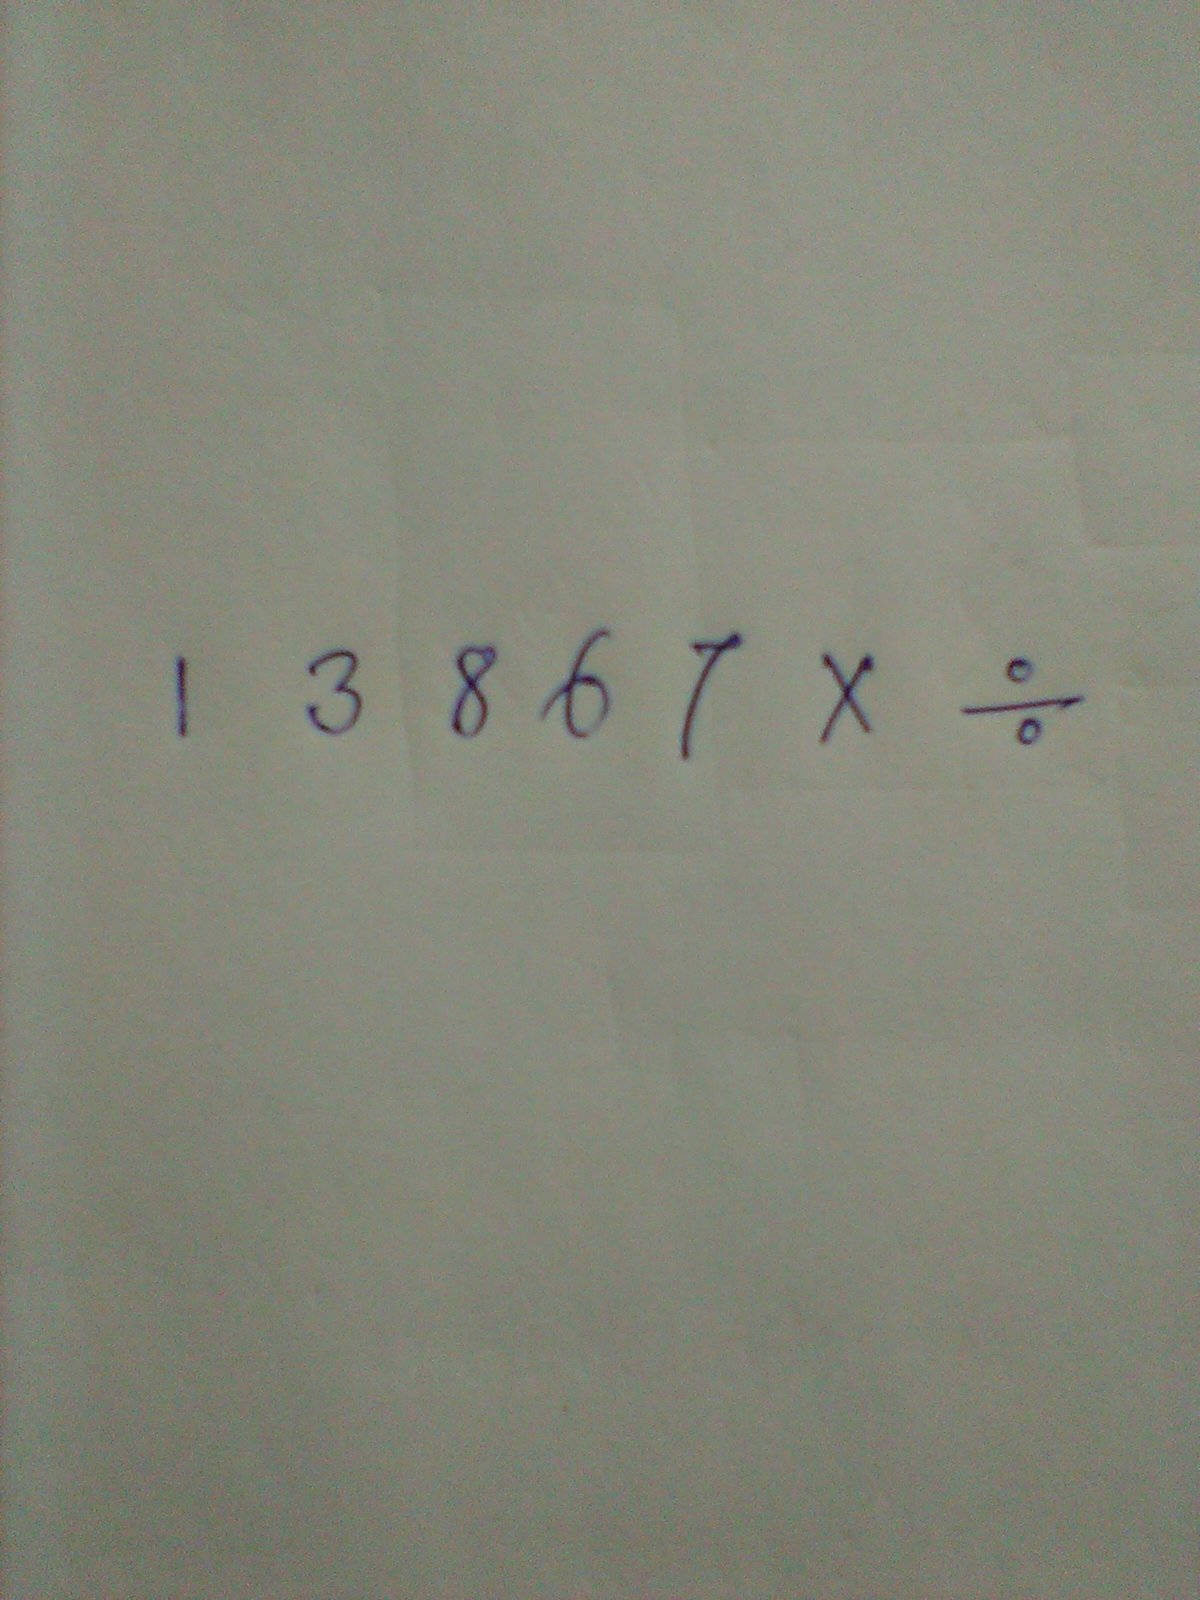 1 3 8 6 7 × ÷